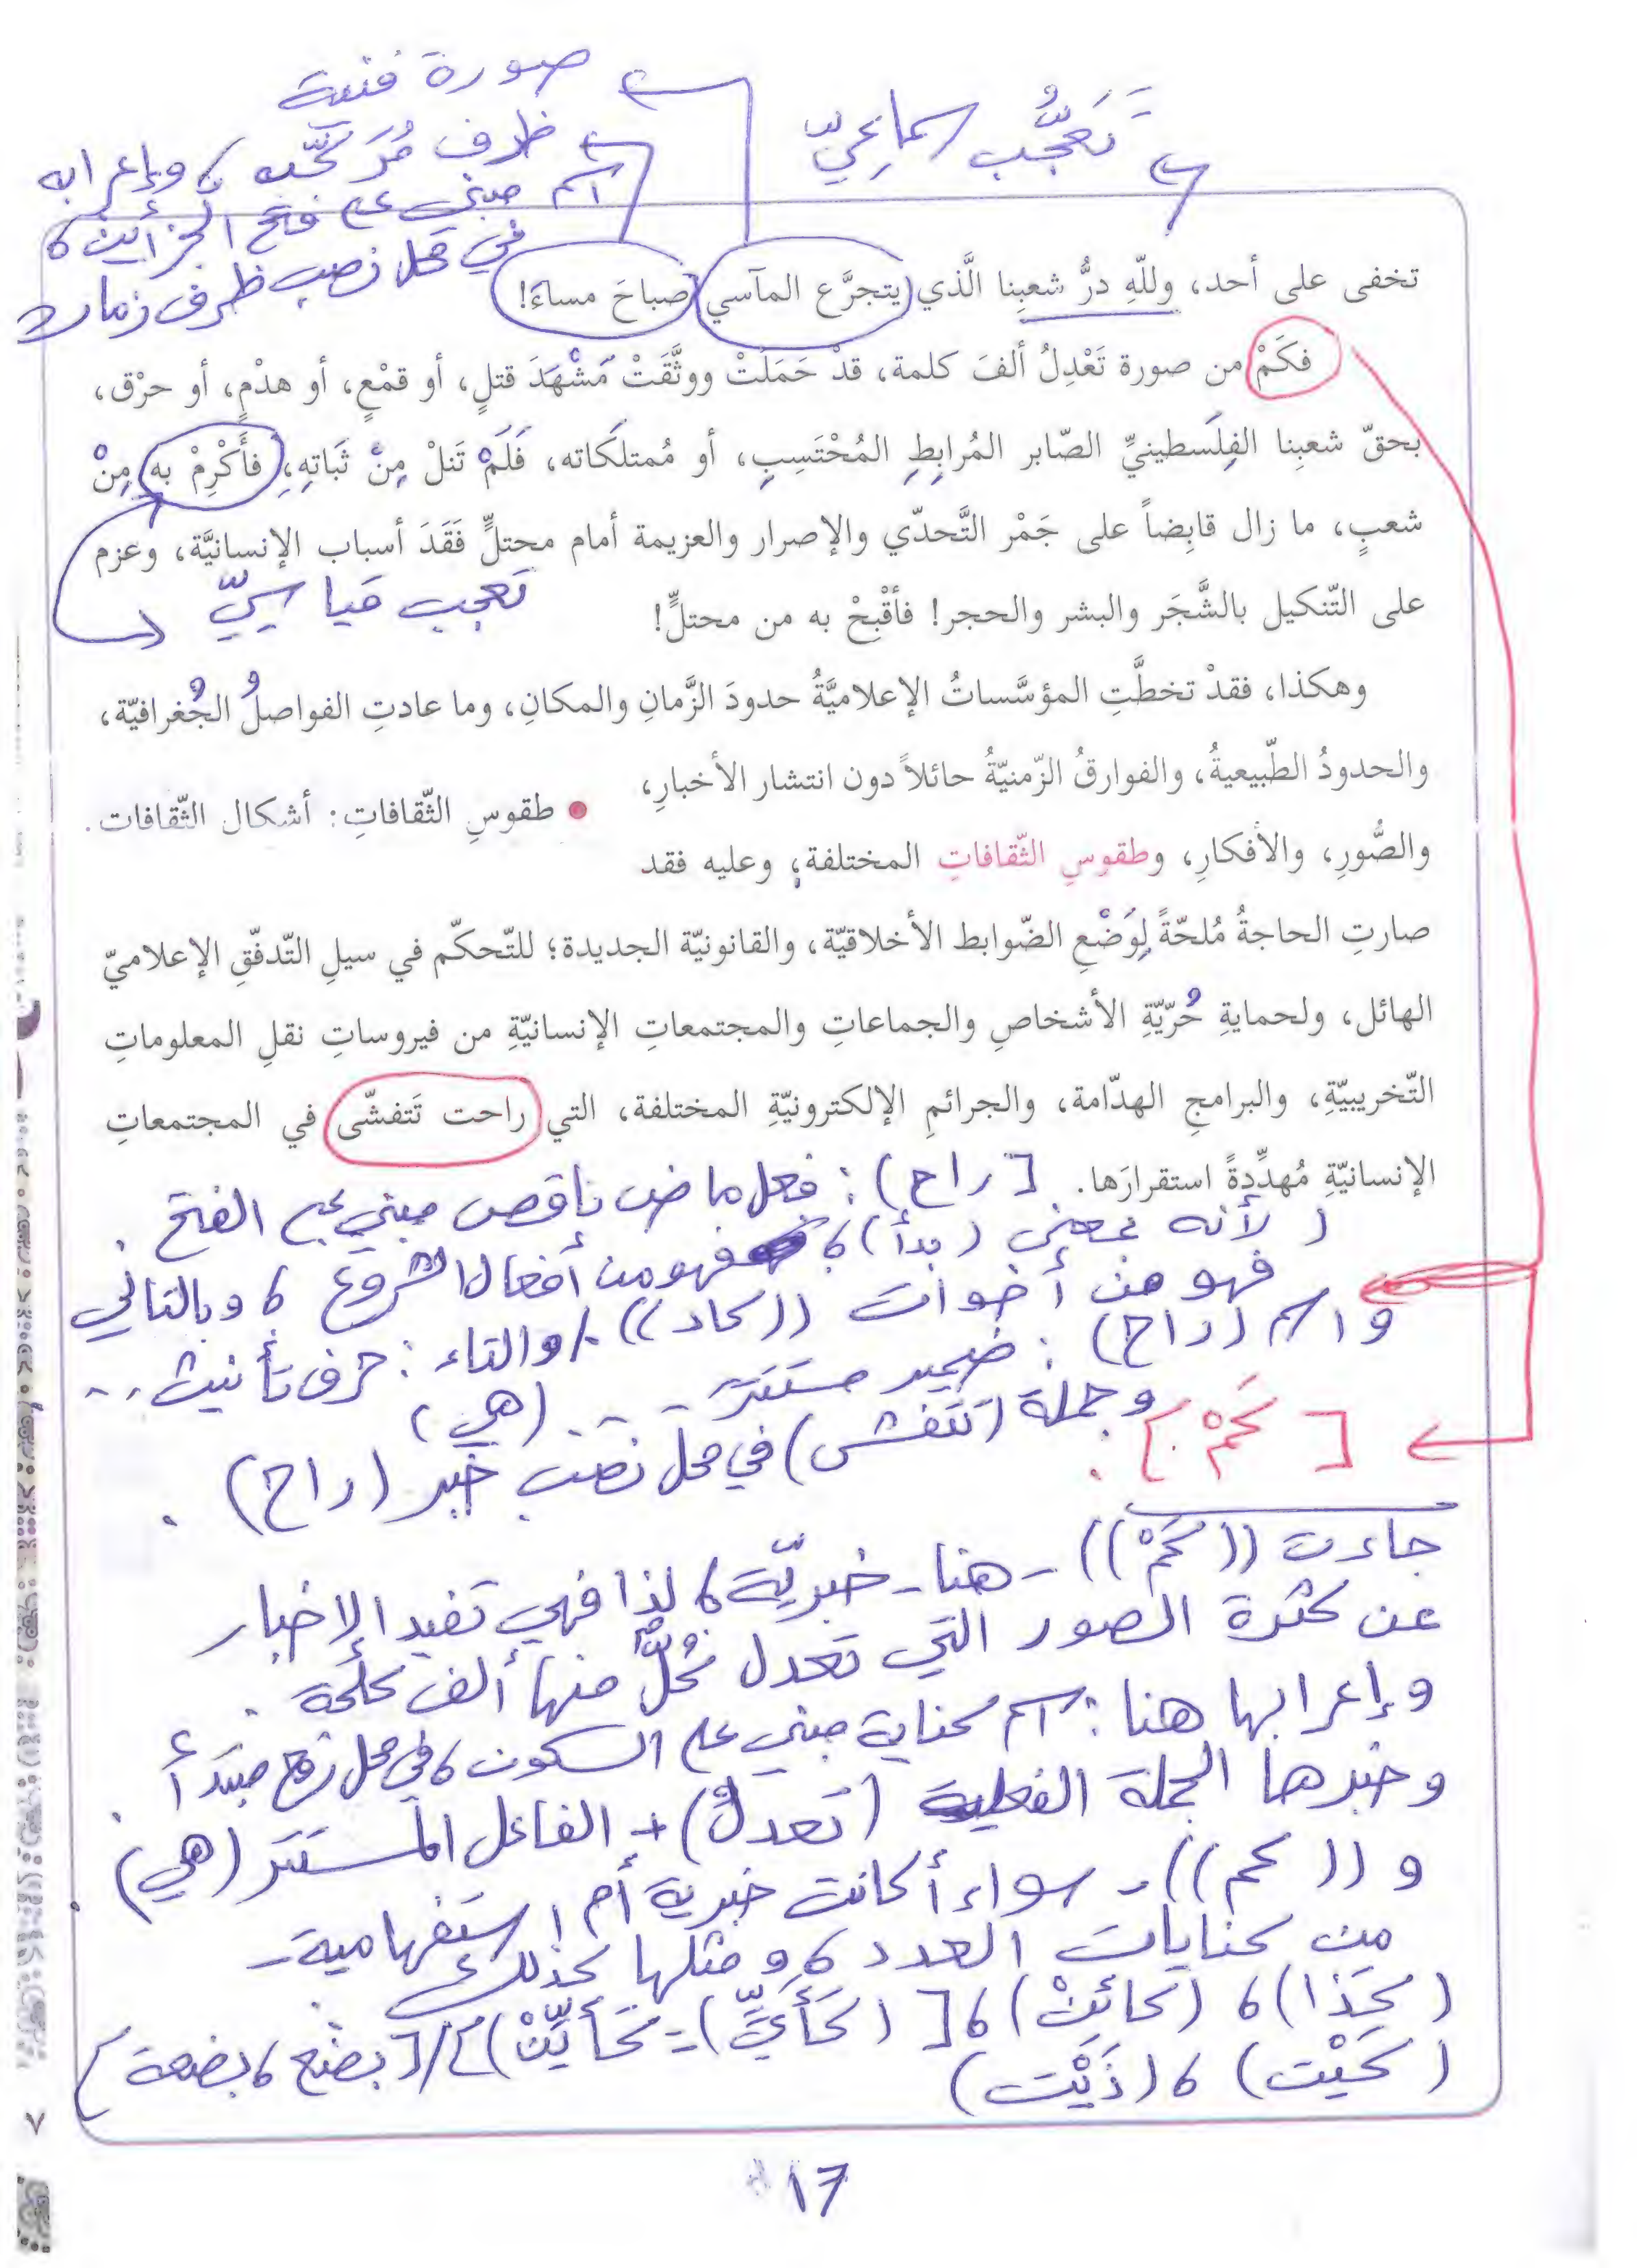 صورة فنية
تَعَجُّب سماعيّ
ظرف مُركّب، وإعرابه
اسم مبني على فتح الجزأين،
في محل نصب ظرف زمان
تخفى على أحد، وللّهِ درُّ شعبِنا الَّذي يتجرَّع المآسي صباحَ مساءَ!
فكَمْ من صورة تَعْدِلُ ألفَ كلمة، قدْ حَمَلَتْ ووثَّقَتْ مَشْهَدَ قتلٍ، أو قمْعٍ، أو هدْمٍ، أو حرْق،
بحقّ شعبِنا الفِلَسطينيِّ الصّابر المُرابِطِ المُحْتَسِبِ، أو مُمتلَكاته، فَلَمْ تَنلْ مِنْ ثَباتِهِ، فأَكْرِمْ به مِنْ
شعبٍ، ما زال قابِضاً على جَمْر التَّحدّي والإصرار والعزيمة أمام محتلٍّ فَقَدَ أسباب الإنسانيَّة، وعزم
على التّنكيل بالشَّجَر والبشر والحجر! فأقْبِحْ به من محتلٍّ!
تعجب قياسيّ
وهكذا، فقدْ تخطَّتِ المؤسَّساتُ الإعلاميَّةُ حدودَ الزَّمانِ والمكانِ، وما عادتِ الفواصلُ الجُغرافيّة،
والحدودُ الطّبيعيةُ، والفوارقُ الزّمنيّةُ حائلاً دون انتشار الأخبارِ،
• طقوسِ الثّقافاتِ: أشكال الثّقافات.
والصُّورِ، والأفكارِ، وطقوسِ الثّقافاتِ المختلفة؛ وعليه فقد
صارتِ الحاجةُ مُلحّةً لِوَضْعِ الضّوابط الأخلاقيّة، والقانونيّة الجديدة؛ للتّحكّم في سيلِ التّدفّقِ الإعلاميّ
الهائل، ولحمايةِ حُرّيّةِ الأشخاصِ والجماعاتِ والمجتمعاتِ الإنسانيّةِ من فيروساتِ نقلِ المعلوماتِ
التّخريبيّةِ، والبرامجِ الهدّامة، والجرائمِ الإلكترونيّةِ المختلفة، التي راحت تَتفشّى في المجتمعاتِ
الإنسانيّةِ مُهدِّدةً استقرارَها.
[راح): فعل ماض ناقص مبني على الفتح.
(لأنه بمعنى (بدأ)، فهو من أفعال الشروع، وبالتالي
فهو من أخوات ((كاد))./ والتاء: حرف تأنيث..
واسم (راح): ضمير مستتر (هي)
وجملة (تتفشى) في محل نصب خبر (راح).
[كَمْ]:
جاءت ((كَمْ)) - هنا - خبريّة، لذا فهي تفيد الإخبار
عن كثرة الصور التي تعدل كُلٌّ منها ألف كلمة.
وإعرابها هنا: اسم كناية مبني على السكون، في محل رفع مبتدأ.
وخبرها الجملة الفعلية (تعدلُ) + الفاعل المستتر (هي).
و((كم)) - سواء أكانت خبرية أم استفهامية -
من كنايات العدد، ومثلها كذلك:
(كَذا)، (كائِنْ)، [(كَأَيِّ) - كَأَيِّنْ)]/[بضع، بضعة]
(كَيْت)، (ذَيْت)
٧
17